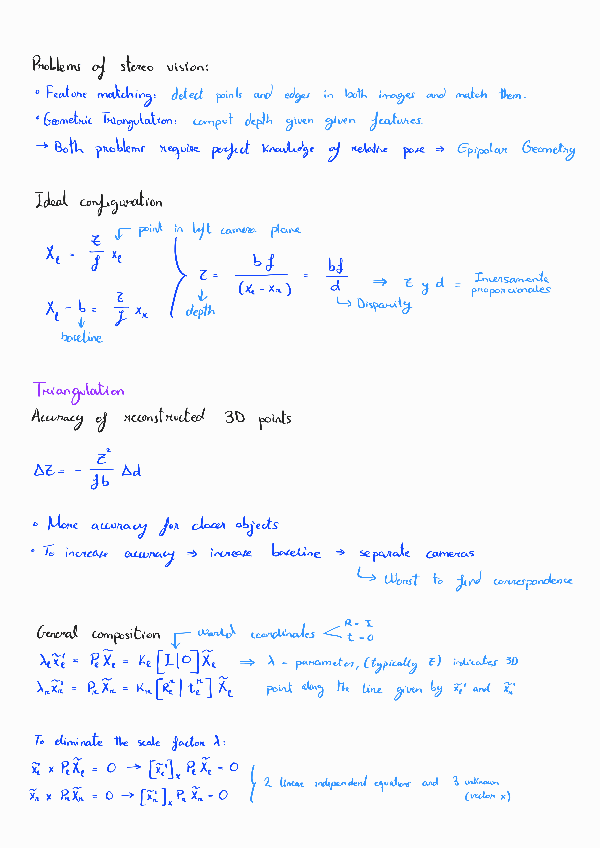 Problems of stereo vision:
• Feature matching: detect points and edges in both images and match them.
• Geometric Triangulation: comput depth given given features.
→ Both problems require perfect knowledge of relative pose ⇒ Epipolar Geometry
Ideal configuration
point in left camera plane
X_l = z/f x_l
X_l - b = z/f x_r
baseline
z = bf/(x_l - x_r) = bf/d ⇒ z y d = Inversamente proporcionales
depth
Disparity
Triangulation
Accuracy of reconstructed 3D points
Δz = - z²/fb Δd
• More accuracy for closer objects
• To increase accuracy → increase baseline → separate cameras
↳ Worst to find correspondence
General composition
World coordinates < R = I
t = 0
λ_l x̃_l' = P_l X̃_l = K_l [I|0] X̃_l ⇒ λ - parameter, (typically z) indicates 3D
λ_r x̃_r' = P_r X̃_r = K_r [R_l^r | t_l^r] X̃_l point along the line given by x̃_l' and x̃_r'
To eliminate the scale factor λ:
x̃_l' × P_l X̃_l = 0 → [x̃_l']_x P_l X̃_l = 0
x̃_r × P_r X̃_r = 0 → [x̃_r']_x P_r X̃_r = 0
2 linear independent equations and 3 unknown
(vector x)